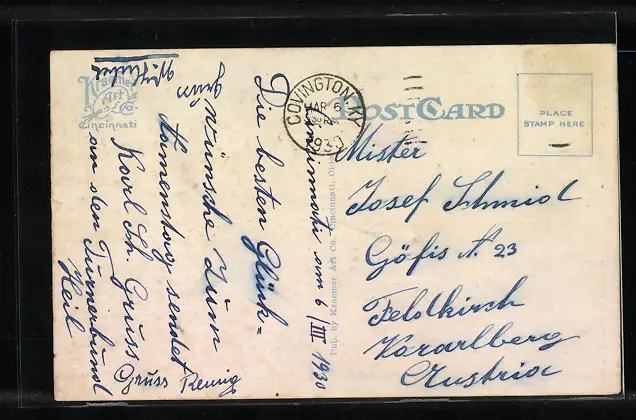 POST CARD
PLACE
STAMP HERE
COVINGTON, KY.
MAR 6
1930
Kraemer
Art
Co.
Cincinnati
Pub. by Kraemer Art Co., Cincinnati, Ohio
Mister
Josef Schmid
Göfis N. 23
Feldkirch
Vorarlberg
Austria
Cincinnati am 6/III 1930
Die besten Glück-
wünsche zum
Namenstag sendet
Karl Sch. Gruss
an den Turnerbund
Heil
Gruss